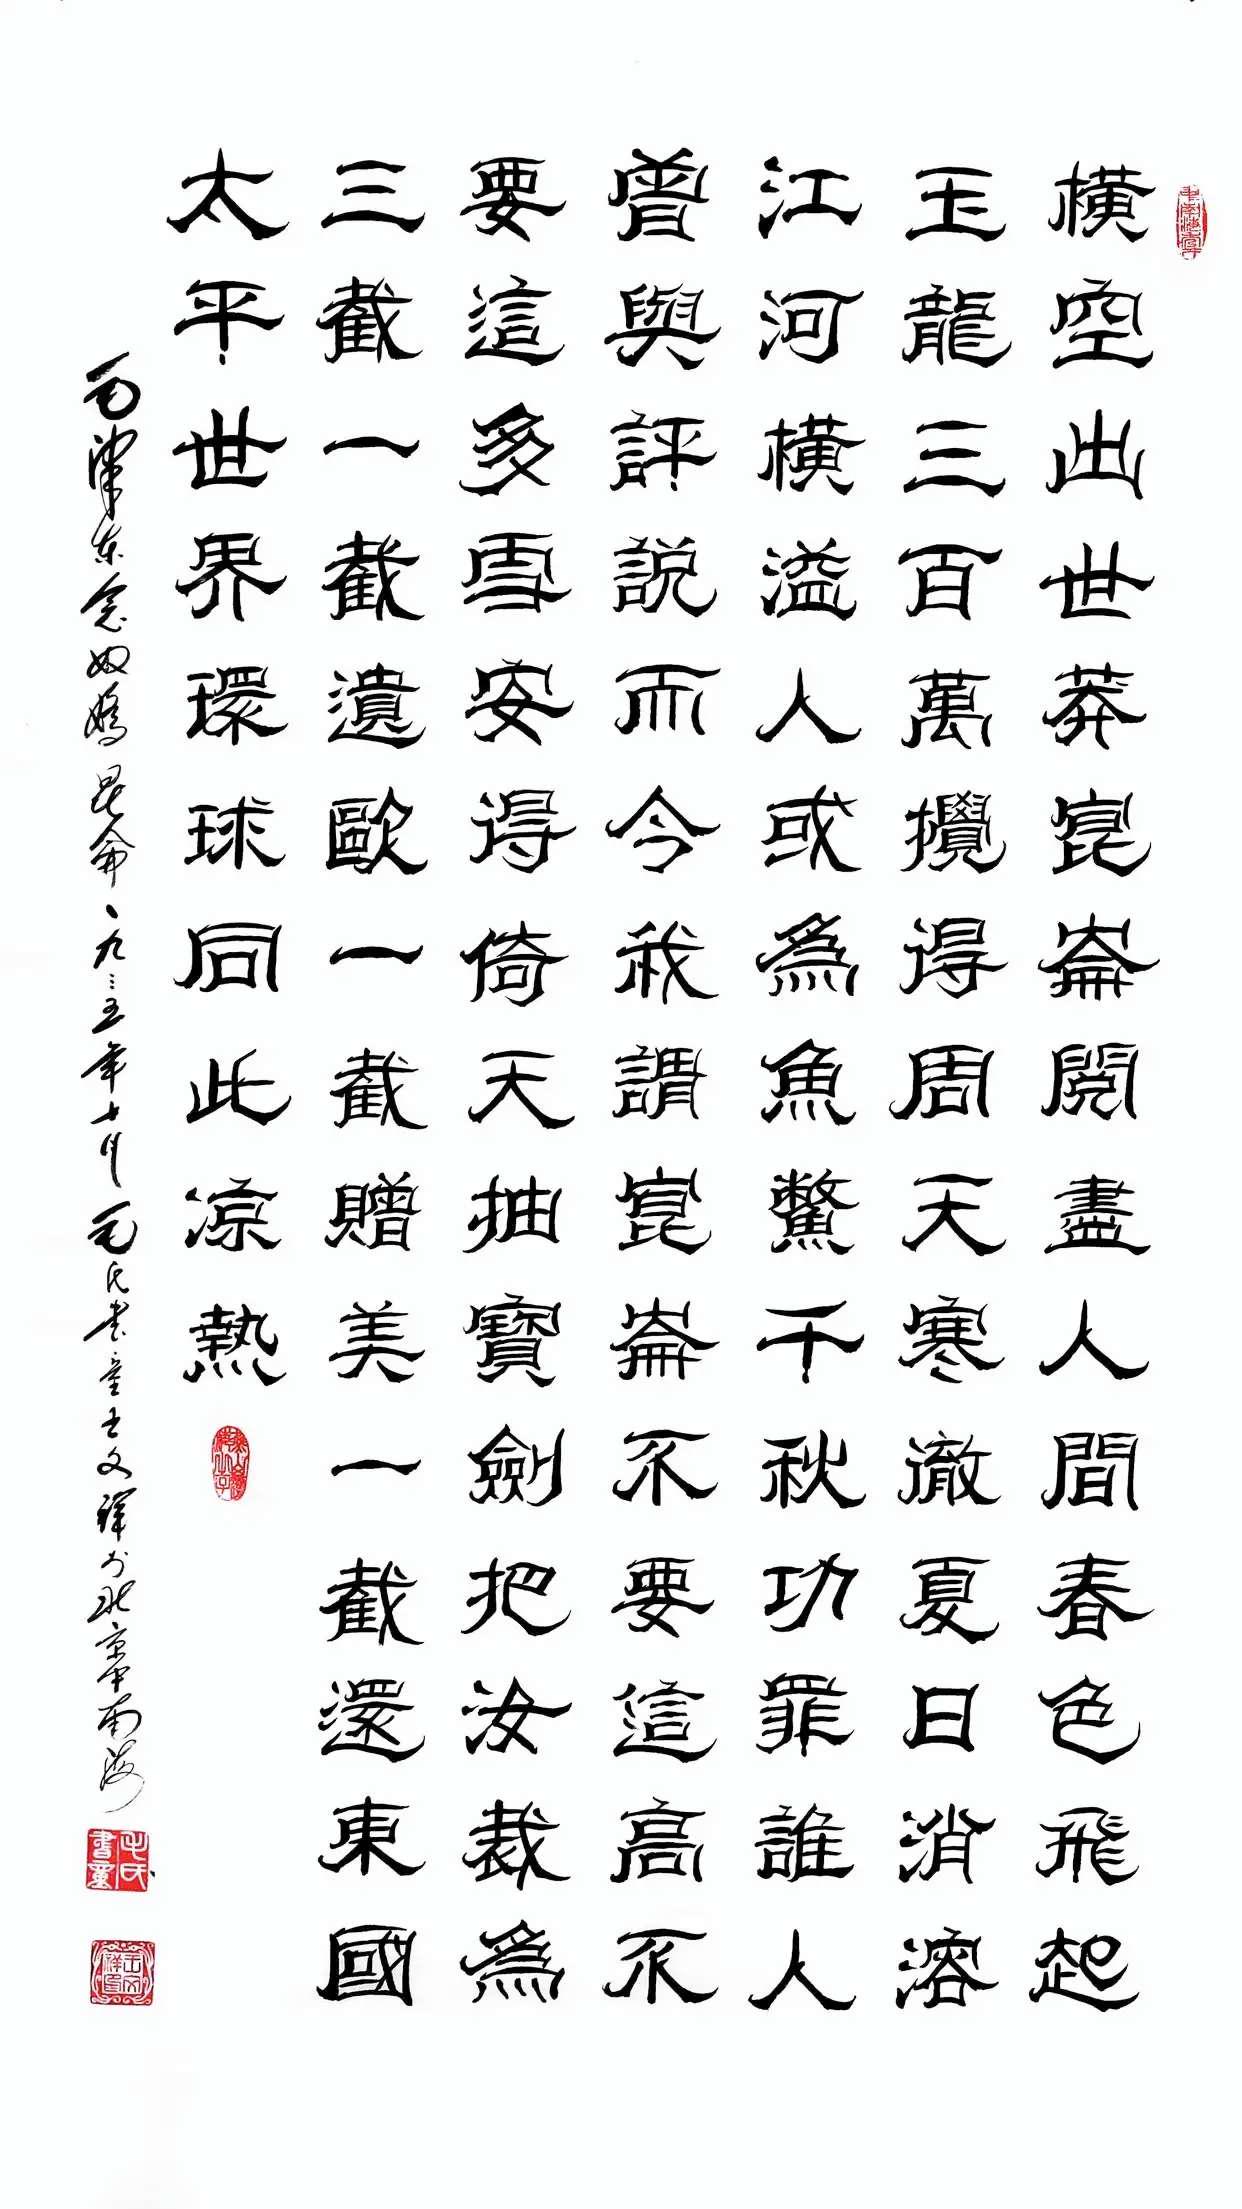 橫空出世莽崑崙閱盡人間春色飛起
玉龍三百萬攪得周天寒徹夏日消溶
江河橫溢人或為魚鱉千秋功罪誰人
曾與評說而今我謂崑崙不要這高不
要這多雪安得倚天抽寶劍把汝裁為
三截一截遺歐一截贈美一截還東國
太平世界環球同此涼熱
毛澤东念奴嬌昆侖一九三五年十月毛氏书童王文祥於北京中南海
毛氏書童
王文祥印